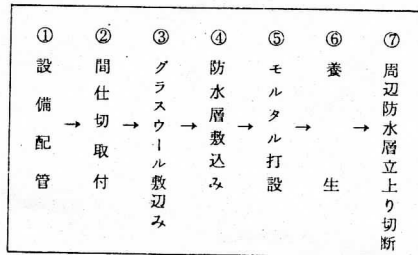 ① 設備配管
→
② 間仕切取付
→
③ グラスウール敷辺み
→
④ 防水層敷込み
→
⑤ モルタル打設
→
⑥ 養生
→
⑦ 周辺防水層立上り切断